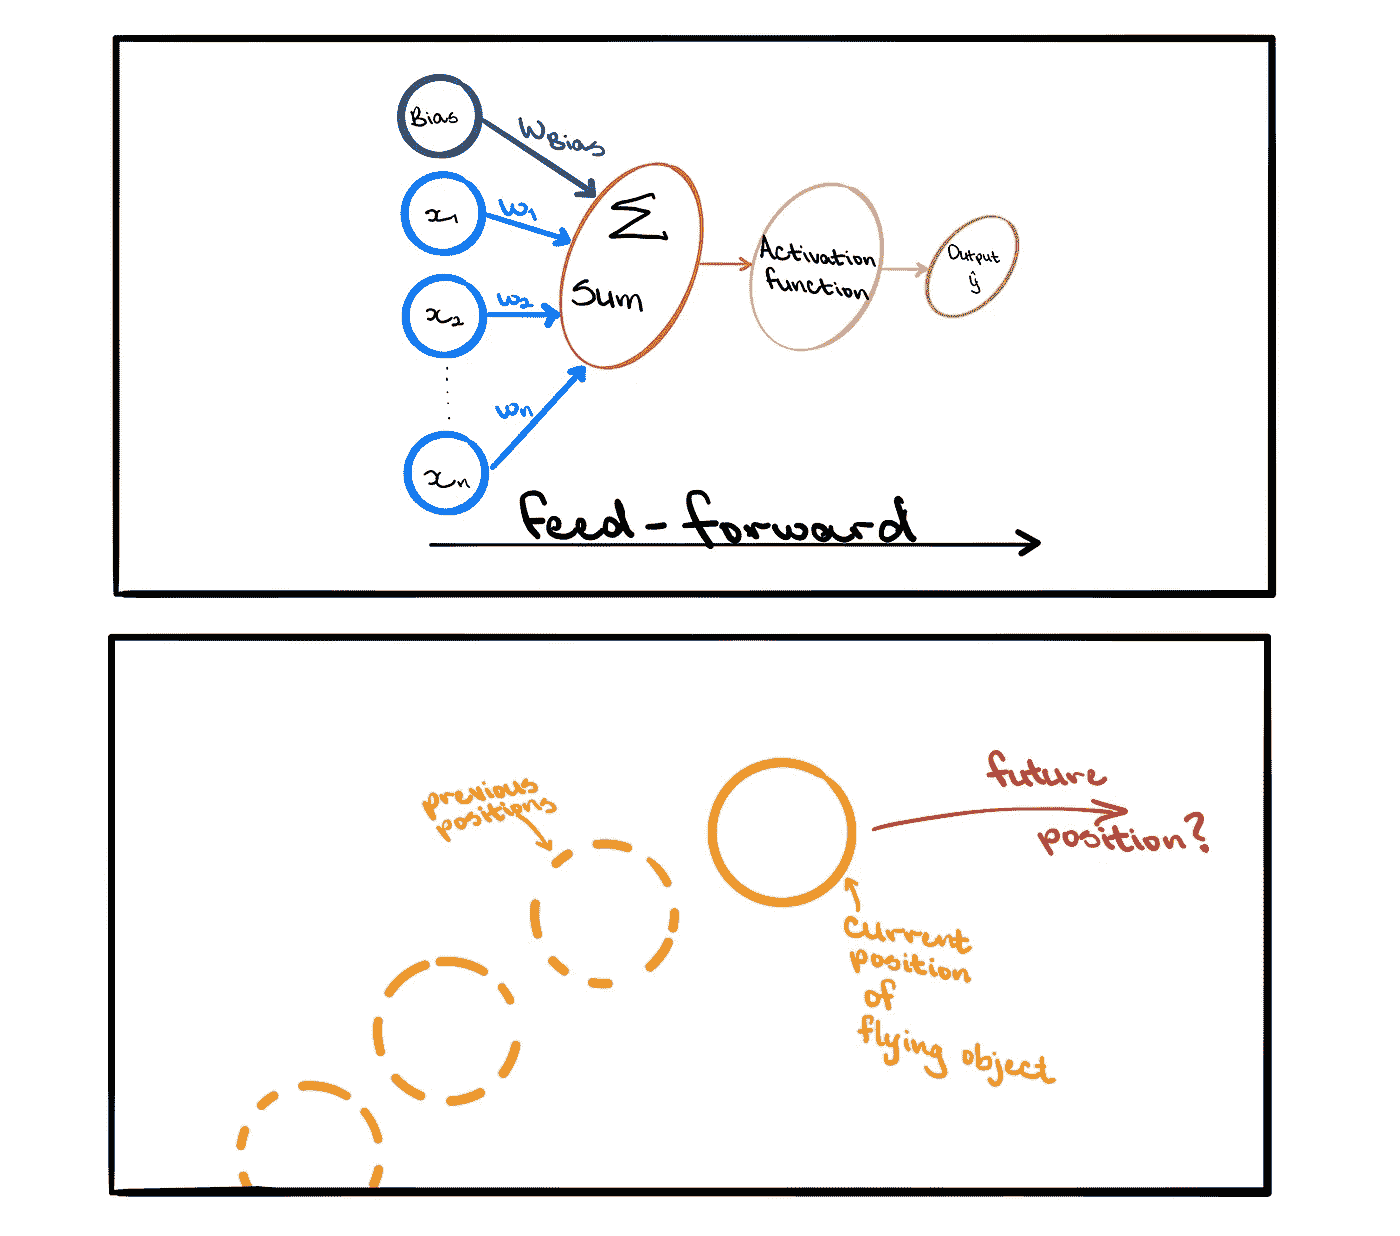 Bias
WBias
x1
w1
Σ
Sum
x2
w2
xn
wn
Activation
function
Output
ŷ
feed-forward
previous
positions
future
position?
current
position
of
flying object